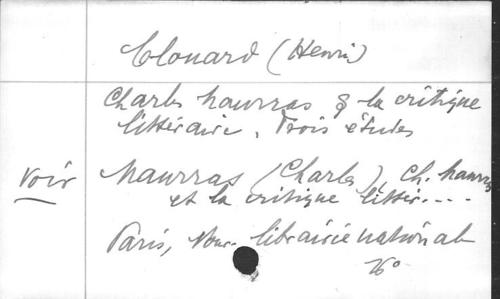 Clouard (Henri)
Charles Maurras & la critique
littéraire. Trois études
voir Maurras (Charles), Ch. Maurras
et la critique littér....
Paris, Nouv. librairie nationale